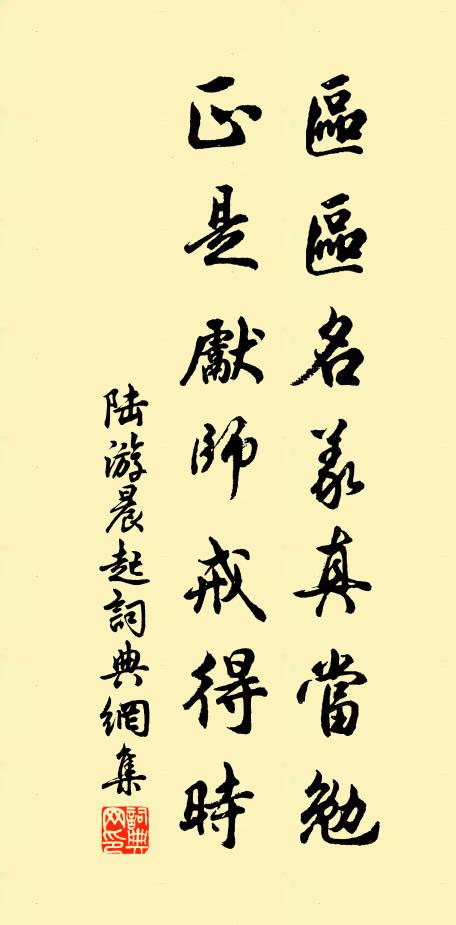 區區名義真當勉
正是獻師戒得時
陸游晨起詞典網集
詞典网印